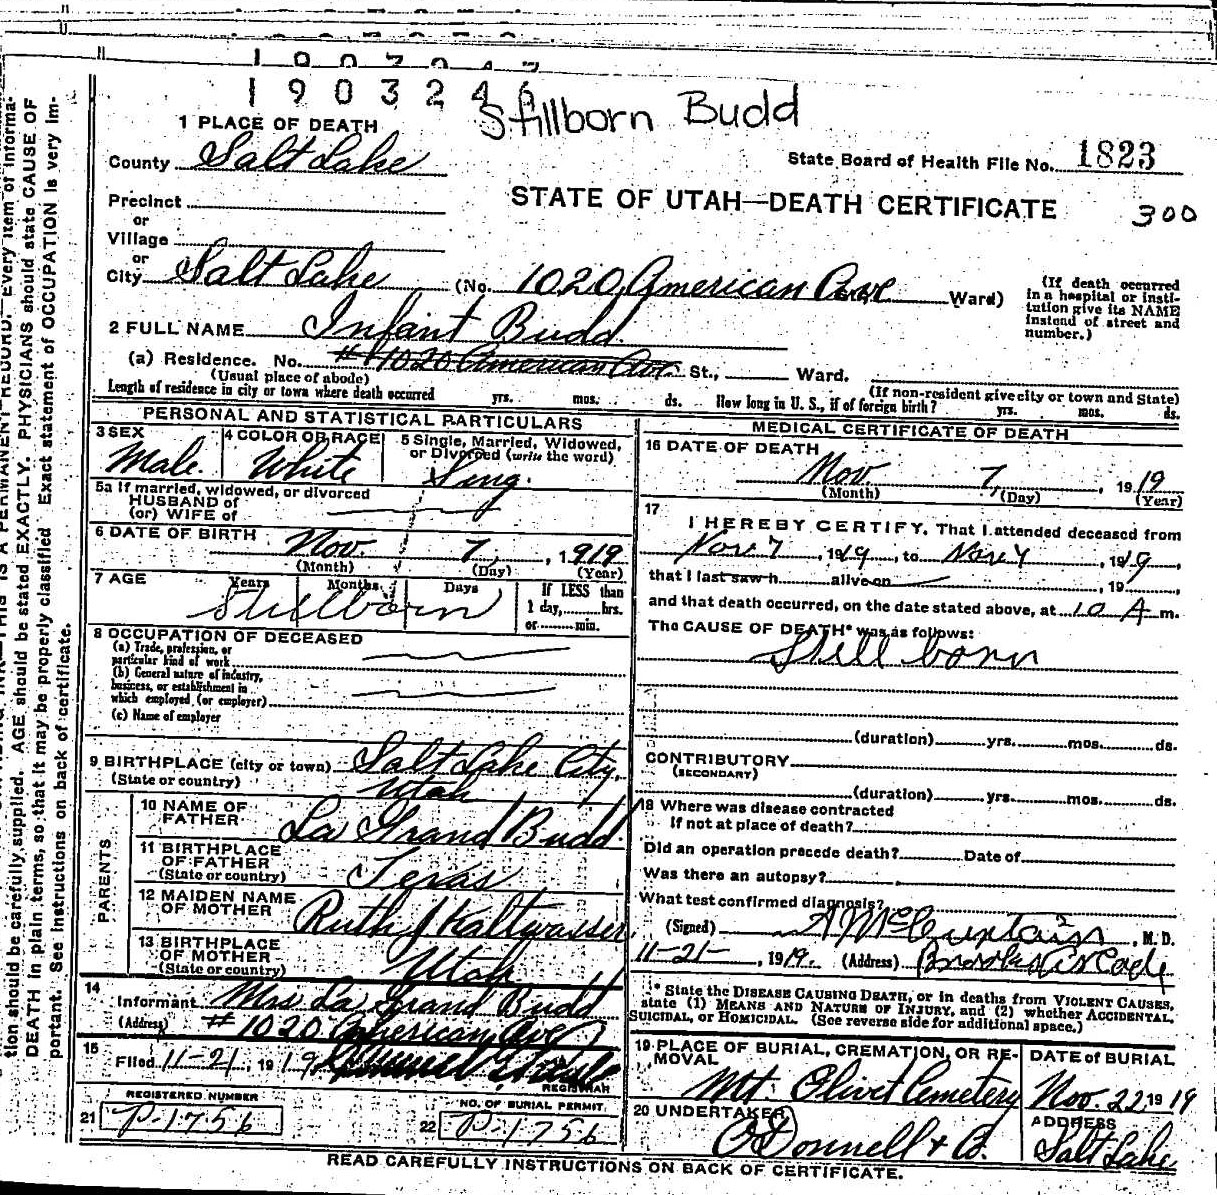 1903247
1903246
Stillborn Budd
1 PLACE OF DEATH
County Salt Lake
State Board of Health File No. 1823
STATE OF UTAH—DEATH CERTIFICATE 300
Precinct
or
Village
or
City Salt Lake (No. 1020 American Ave Ward)
(If death occurred in a hospital or institution give its NAME instead of street and number.)
2 FULL NAME Infant Budd.
(a) Residence. No. #1020 American Ave. St., Ward.
(Usual place of abode) (If non-resident give city or town and State)
Length of residence in city or town where death occurred yrs. mos. ds. How long in U. S., if of foreign birth? yrs. mos. ds.
PERSONAL AND STATISTICAL PARTICULARS
3 SEX Male.
4 COLOR OR RACE White
5 Single, Married, Widowed, or Divorced (write the word) Sing.
5a If married, widowed, or divorced
HUSBAND of
(or) WIFE of
6 DATE OF BIRTH Nov. 7, 1919
(Month) (Day) (Year)
7 AGE Years Months Days If LESS than
Stillborn 1 day, hrs.
or min.
8 OCCUPATION OF DECEASED
(a) Trade, profession, or
particular kind of work
(b) General nature of industry,
business, or establishment in
which employed (or employer)
(c) Name of employer
9 BIRTHPLACE (city or town) Salt Lake City,
(State or country) Utah
PARENTS
10 NAME OF FATHER La Grand Budd.
11 BIRTHPLACE OF FATHER
(State or country) Texas
12 MAIDEN NAME OF MOTHER Ruth J Kaltwasser
13 BIRTHPLACE OF MOTHER
(State or country) Utah
14
Informant Mrs La Grand Budd
(Address) #1020 American Ave
15
Filed 11-21, 1919
REGISTRAR
REGISTERED NUMBER
21 P-1756
NO. OF BURIAL PERMIT
22 P-1756
MEDICAL CERTIFICATE OF DEATH
16 DATE OF DEATH
Nov. 7, 1919
(Month) (Day) (Year)
17
I HEREBY CERTIFY, That I attended deceased from
Nov 7, 1919, to Nov 7 1919,
that I last saw h alive on , 19
and that death occurred, on the date stated above, at 10 A m.
The CAUSE OF DEATH* was as follows:
Still born
(duration) yrs. mos. ds.
CONTRIBUTORY
(SECONDARY)
(duration) yrs. mos. ds.
18 Where was disease contracted
If not at place of death?
Did an operation precede death? Date of
Was there an autopsy?
What test confirmed diagnosis?
(Signed) , M. D.
11-21-, 1919. (Address)
* State the DISEASE CAUSING DEATH, or in deaths from VIOLENT CAUSES,
state (1) MEANS AND NATURE OF INJURY, and (2) whether ACCIDENTAL,
SUICIDAL, or HOMICIDAL. (See reverse side for additional space.)
19 PLACE OF BURIAL, CREMATION, OR REMOVAL
Mt. Olivet Cemetery
DATE of BURIAL
Nov. 22 1919
20 UNDERTAKER
O'Donnell & Co.
ADDRESS
Salt Lake
READ CAREFULLY INSTRUCTIONS ON BACK OF CERTIFICATE.
tion should be carefully supplied. AGE should be stated EXACTLY. PHYSICIANS should state CAUSE OF
DEATH in plain terms, so that it may be properly classified. Exact statement of OCCUPATION is very im-
portant. See instructions on back of certificate.